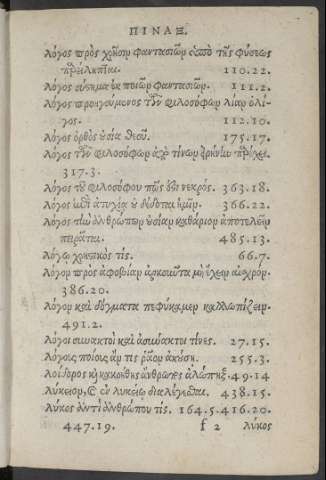 ΠΙΝΑΞ.
λόγος πρὸς χρῆσιν φαντασιῶν ἀπὸ τῆς φύσεως
110.22.
λόγος σύστημα ἐκ ποιῶν φαντασιῶν. 111.2.
λόγος προηγούμενος τῶν φιλοσόφων λίαν ὀλί-
γος. 112.10.
λόγος ὀρθὸς οὐσία θεοῦ. 175.17.
λόγος τῶν φιλοσόφων ἀπὸ τίνων
317.3.
λόγος τοῦ φιλοσόφου πῶς ἐστι νεκρός. 363.18.
λόγος ἐπὶ ἀτυχίᾳ οὐ δίδοται ἡμῖν. 366.22.
λόγος τὴν ἀνθρώπων οὐσίαν καθάριον ἀποτελεῖν
πειρᾶται. 485.13.
λόγῳ χρηστικὸς τίς. 66.7.
λόγον πρὸς ἀφοβίαν ἀρκοῦντα μὴ ἔχειν αἰσχρόν.
386.20.
λόγον καὶ δόγματα πεφύκαμεν καλλωπίζειν.
491.2.
λόγοι συνακτοὶ καὶ ἀσύνακτοι τίνες. 27.15.
λόγοις ποίοις ἄν τις ῥᾷον 255.3.
λοίδορος καὶ κακοήθης ἄνθρωπος ἀλώπηξ. 49.14
λύκειον, καὶ ἐν λυκείῳ διαλέγεσθαι. 438.15.
λύκος ἀντὶ ἀνθρώπου τίς. 164.5. 416.20.
447.19. f 2 λύκος